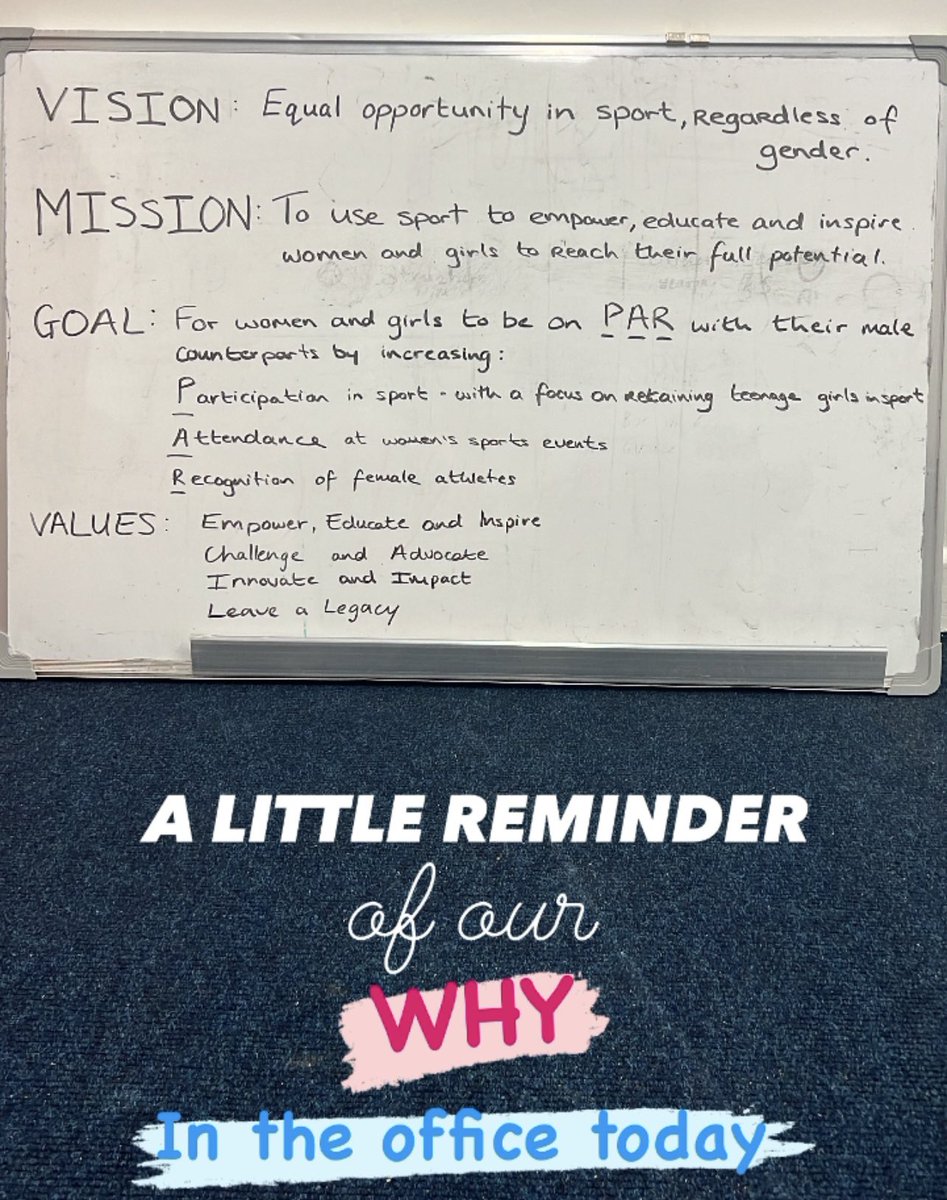 VISION: Equal opportunity in sport, Regardless of
gender.
MISSION: To use sport to empower, educate and inspire
women and girls to Reach their full potential.
GOAL: For women and girls to be on PAR with their male
counterparts by increasing:
Participation in sport - with a focus on retaining teenage girls in sport
Attendance at women's sports events
Recognition of female athletes
VALUES: Empower, Educate and Inspire
Challenge and Advocate
Innovate and Impact
Leave a Legacy
A LITTLE REMINDER
of our
WHY
In the office today